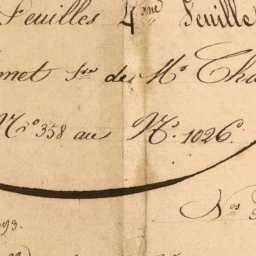 Feuilles 4me Feuille
met Son de Mr Cha
No 358 au No 1026.
Nos
93.